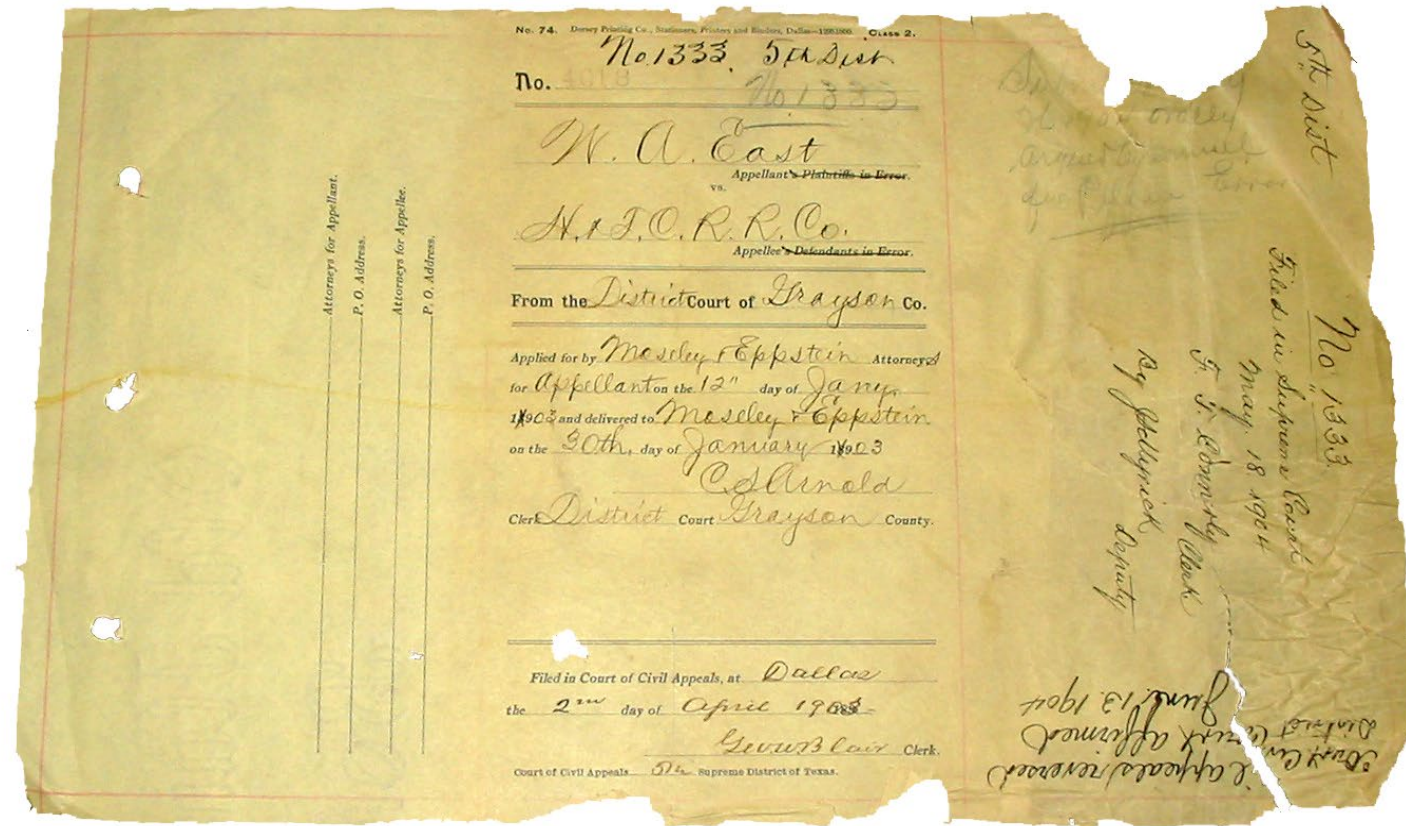 No. 74. Dorsey Printing Co., Stationers, Printers and Binders, Dallas— Class 2.
No. 1333. 5th Dist
No. 4018
No 1333
W. A. East
Appellant's Plaintiffs in Error.
vs.
H. & T. C. R. R. Co.
Appellee's Defendants in Error.
From the District Court of Grayson Co.
Applied for by Moseley & Eppstein Attorneys
for Appellant on the 12" day of Jany.
1903 and delivered to Moseley & Eppstein
on the 30th, day of January 1903
C S Arnold
Clerk District Court Grayson County.
Filed in Court of Civil Appeals, at Dallas
the 2nd day of April 1903
Geo W Blair Clerk.
Court of Civil Appeals 5th Supreme District of Texas.
Attorneys for Appellant.
P. O. Address.
Attorneys for Appellee.
P. O. Address.
5th Dist
No 1333
Filed in Supreme Court
May. 18 1904
F. T. Connerly Clerk
By Deputy
Court Civil appeals reversed
District Court affirmed
June. 13. 1904